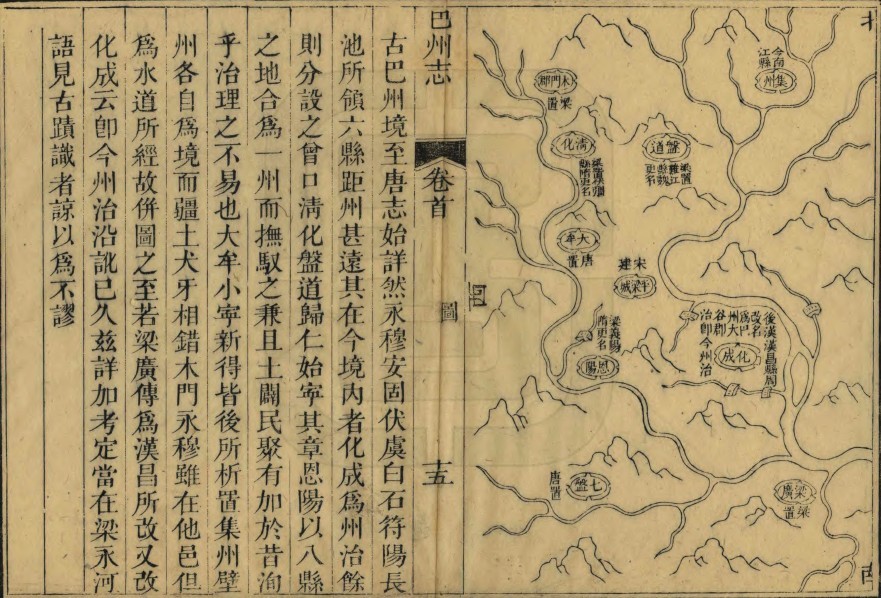 集州
今南
江縣
盤道
梁置
難江
縣魏
更名
木門郡
梁置
清化
大牟
唐置
宋建
平梁城
後漢漢昌縣周
改名
爲巴
州大
谷郡
治卽今州治
化成
梁義陽
隋更名
恩陽
梁廣
梁置
七盤
唐置
巴州志
卷首
圖
十五
古巴州境至唐志始詳然永穆安固伏虞白石符陽長
池所領六縣距州甚遠其在今境內者化成爲州治餘
則分設之曾口清化盤道歸仁始寧其章恩陽以八縣
之地合爲一州而撫馭之兼且土闢民聚有加於昔洵
乎治理之不易也大牟小寧新得皆後所析置集州壁
州各自爲境而疆土犬牙相錯木門永穆雖在他邑但
爲水道所經故併圖之至若梁廣傳爲漢昌所改又改
化成云卽今州治沿訛已久兹詳加考定當在梁永河
語見古蹟識者諒以爲不謬